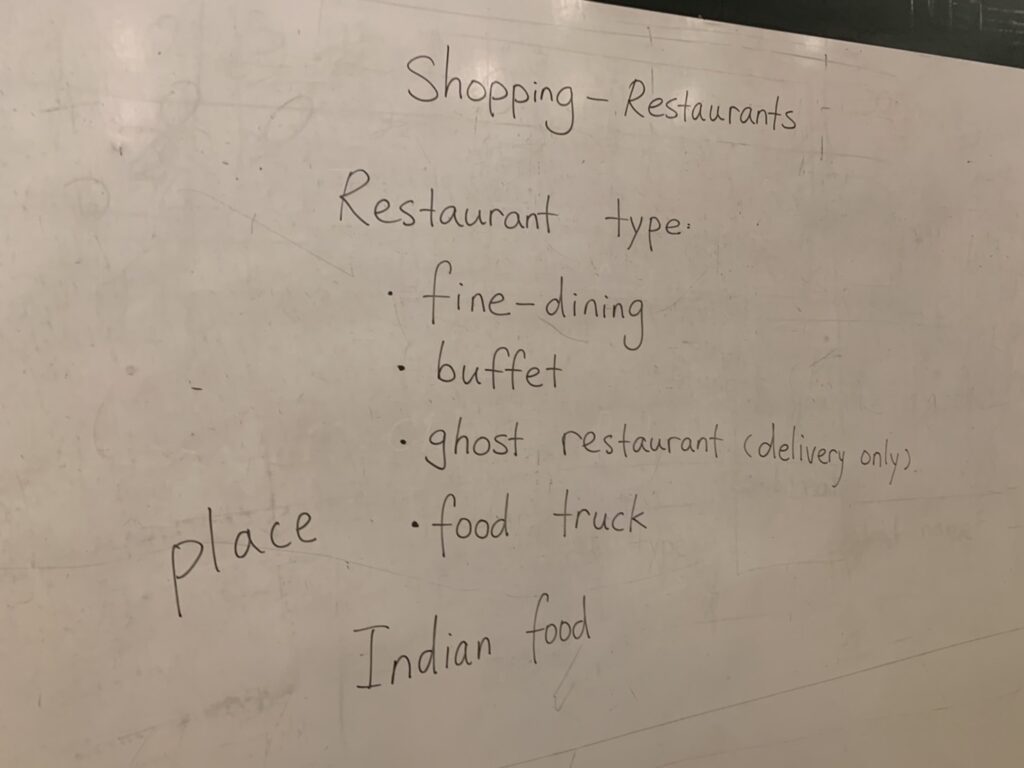 Shopping - Restaurants
Restaurant type:
· fine-dining
· buffet
· ghost restaurant (delivery only).
place
· food truck
Indian food